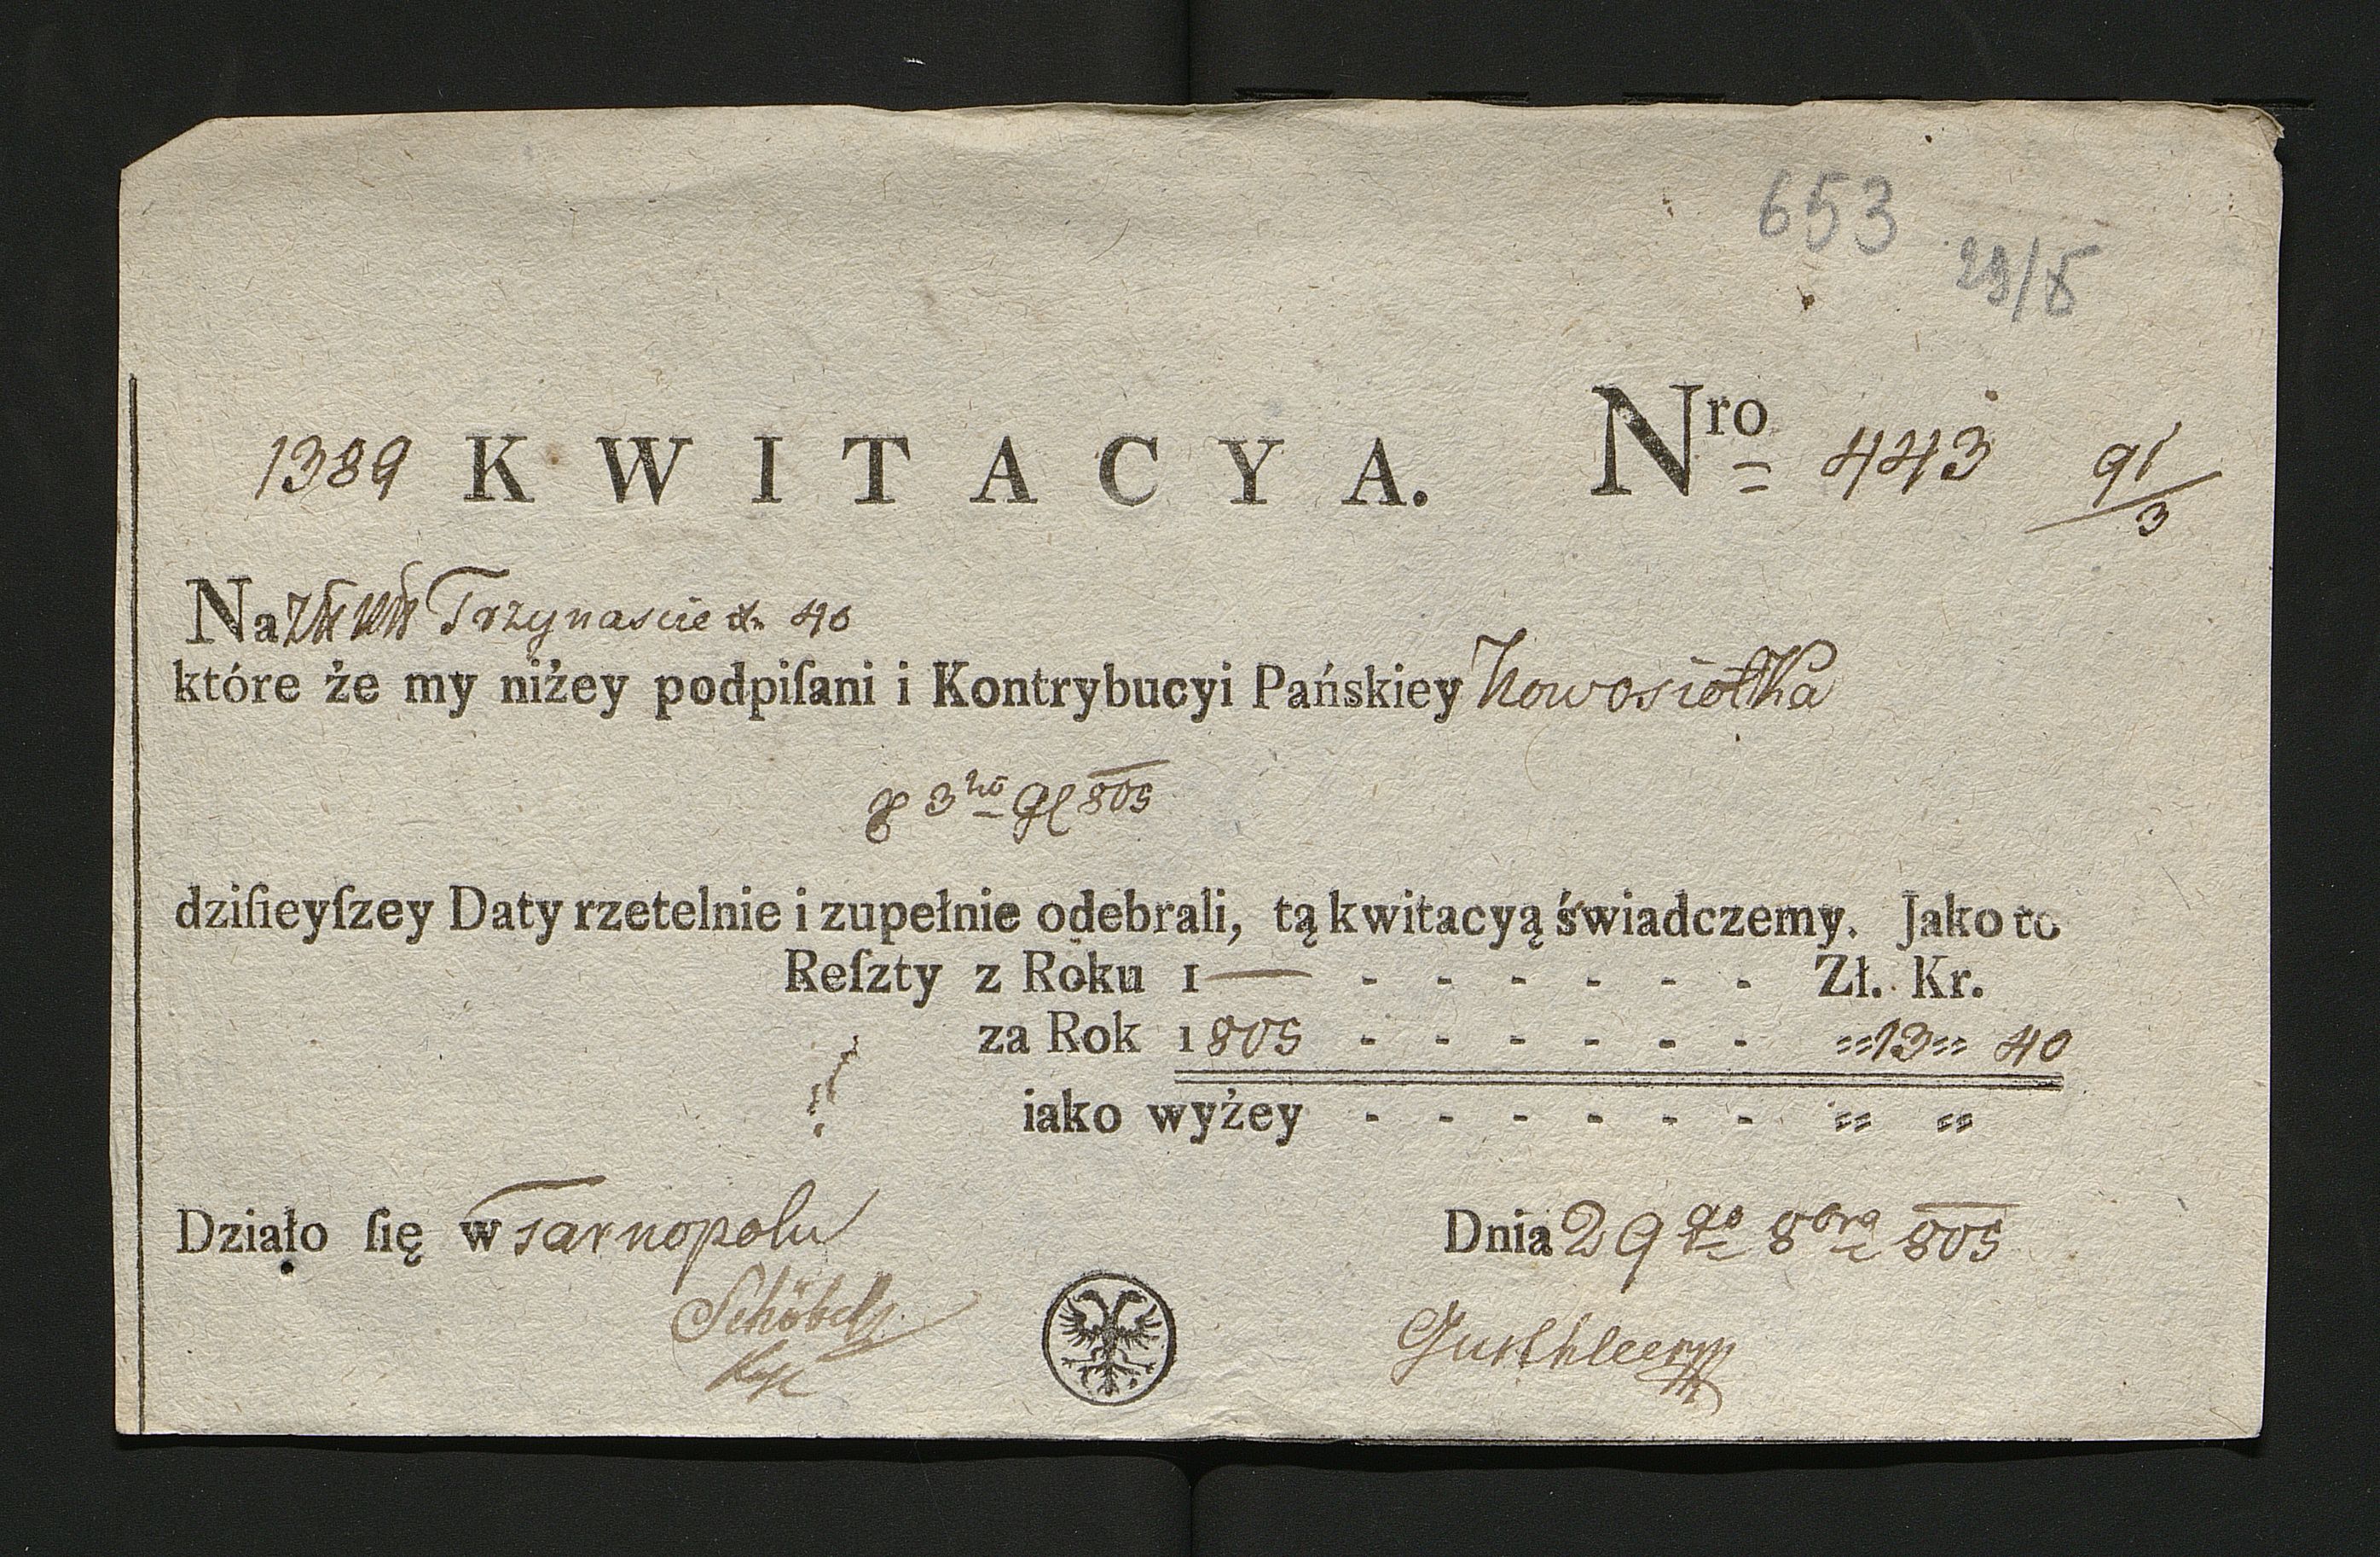 653
29/8
1389 KWITACYA. Nro 443 91/3
Na Zł Trzynascie 40
które że my niżey podpiſani i Kontrybucyi Pańskiey Nowosiołka
3tio 805
dziſieyſzey Daty rzetelnie i zupełnie odebrali, tą kwitacyą świadczemy. Jako to
Reſzty z Roku 1— - - - - - - Zł. Kr.
za Rok 1805 - - - - - - „13„ 40
iako wyżey - - - - - - „ „
Działo ſię w Tarnopolu Dnia 29go 8bra 805
Schöbel